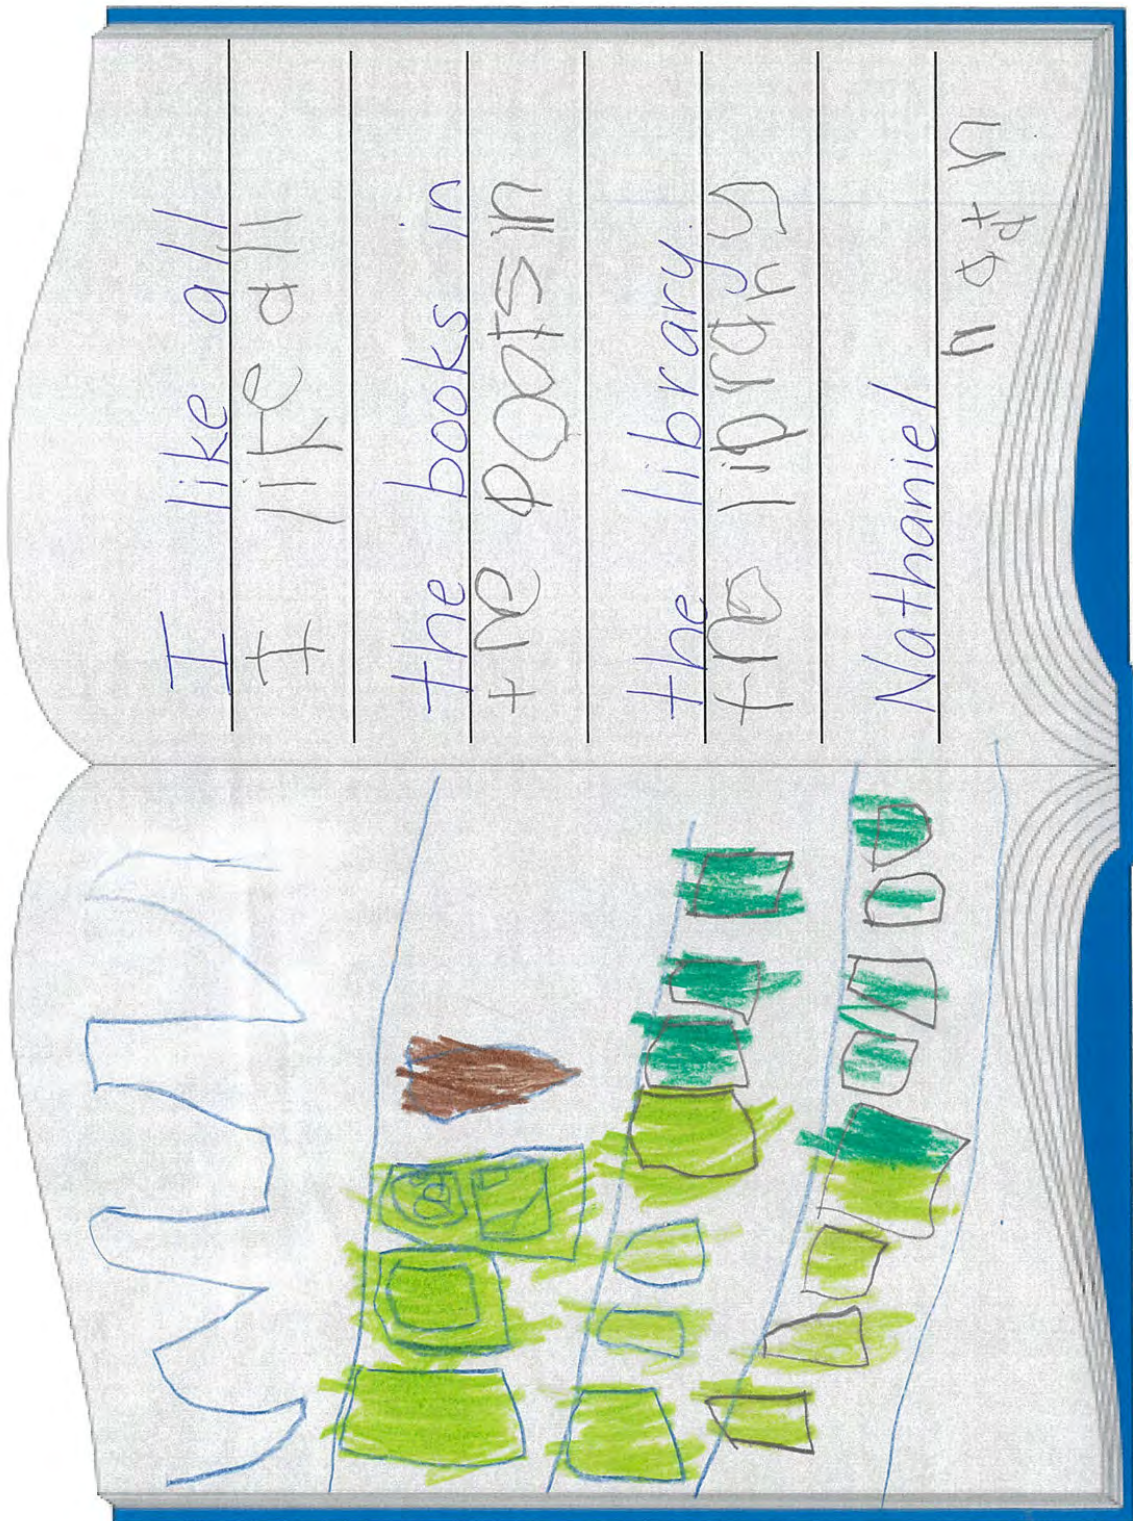 I like all
I like all
the books in
the pootsin
the library.
the liprary
Nathaniel
natn